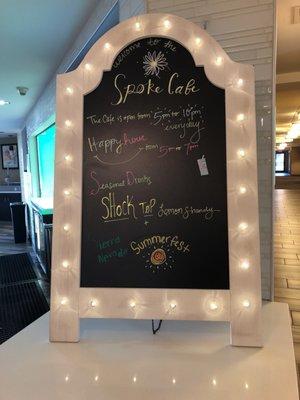 welcome to the
Spoke Cafe
The Cafe is open from "5pm to 10pm"
"everyday"
Happy hour from 5pm to 7pm
Seasonal Drinks
SHOCK TOP Lemon Shandy
Sierra Nevada Summerfest